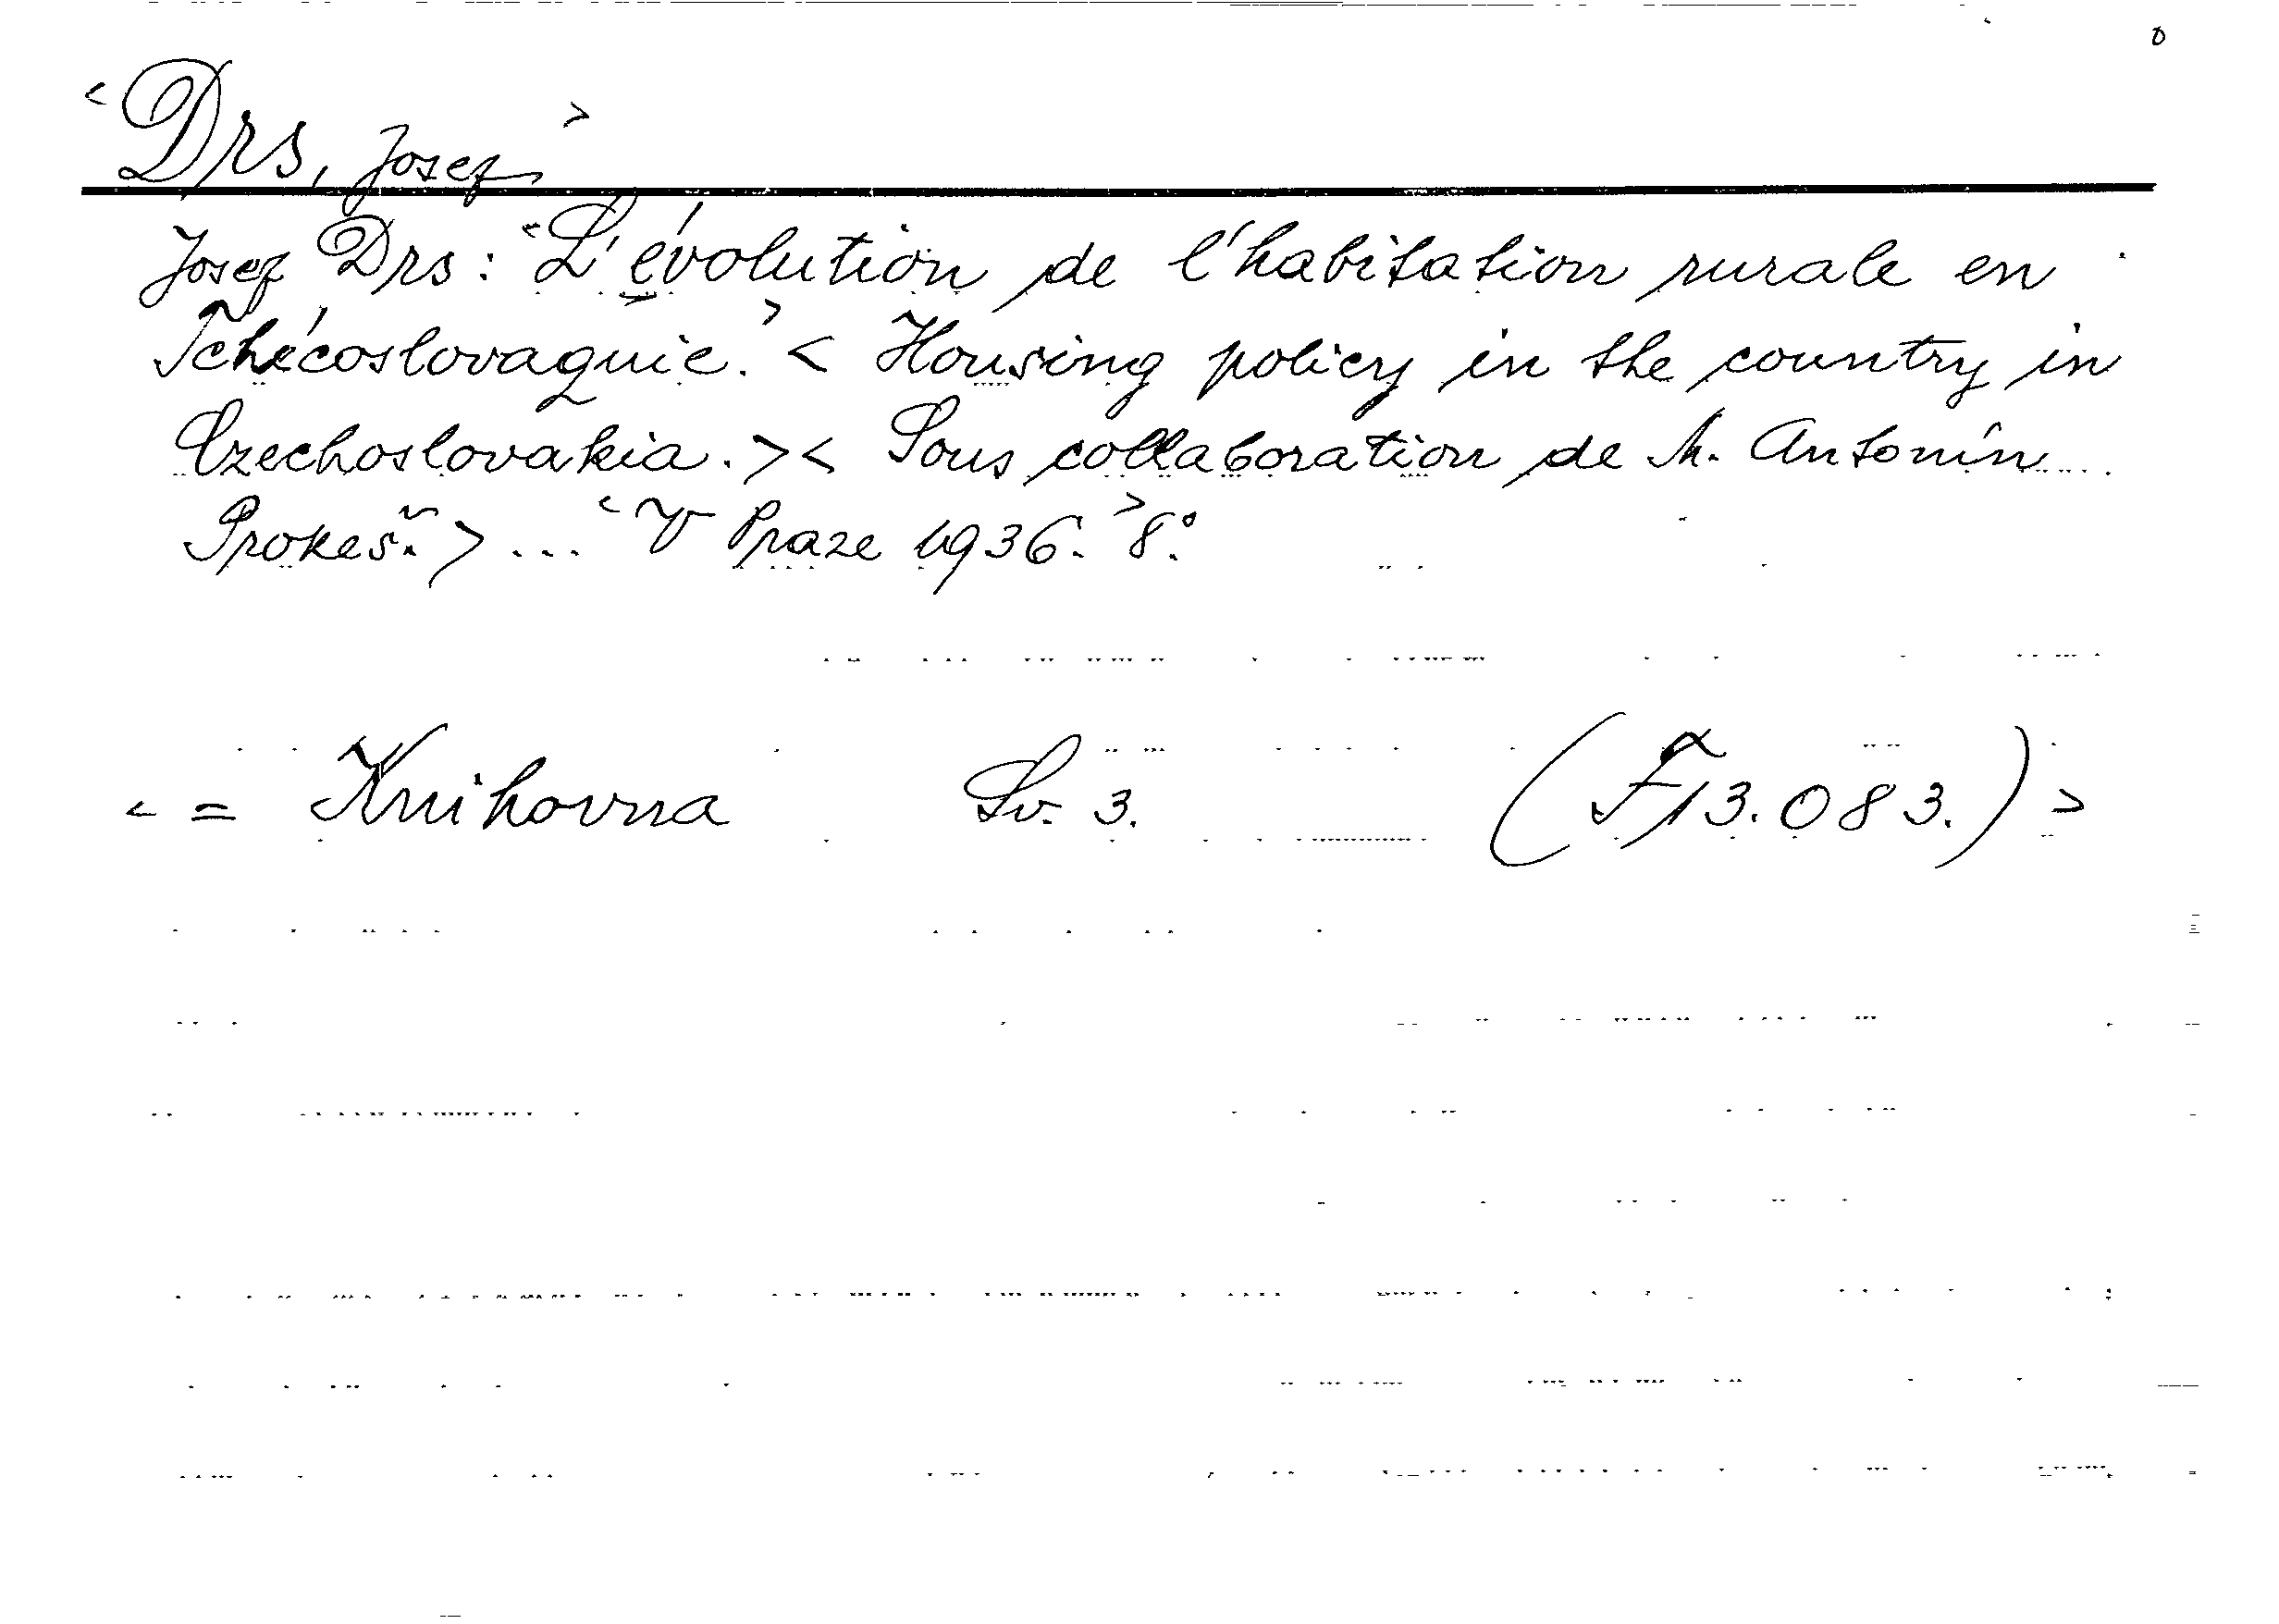 <Drs, Josef>
Josef Drs: <L'évolution de l'habitation rurale en
Tchécoslovaquie.> < Housing policy in the country in
Czechoslovakia. >< Sous collaboration de M. Antonín
Prokeš. > ... <V Praze 1936.> 8°.
< = Knihovna Sv. 3. (F 13.083.) >